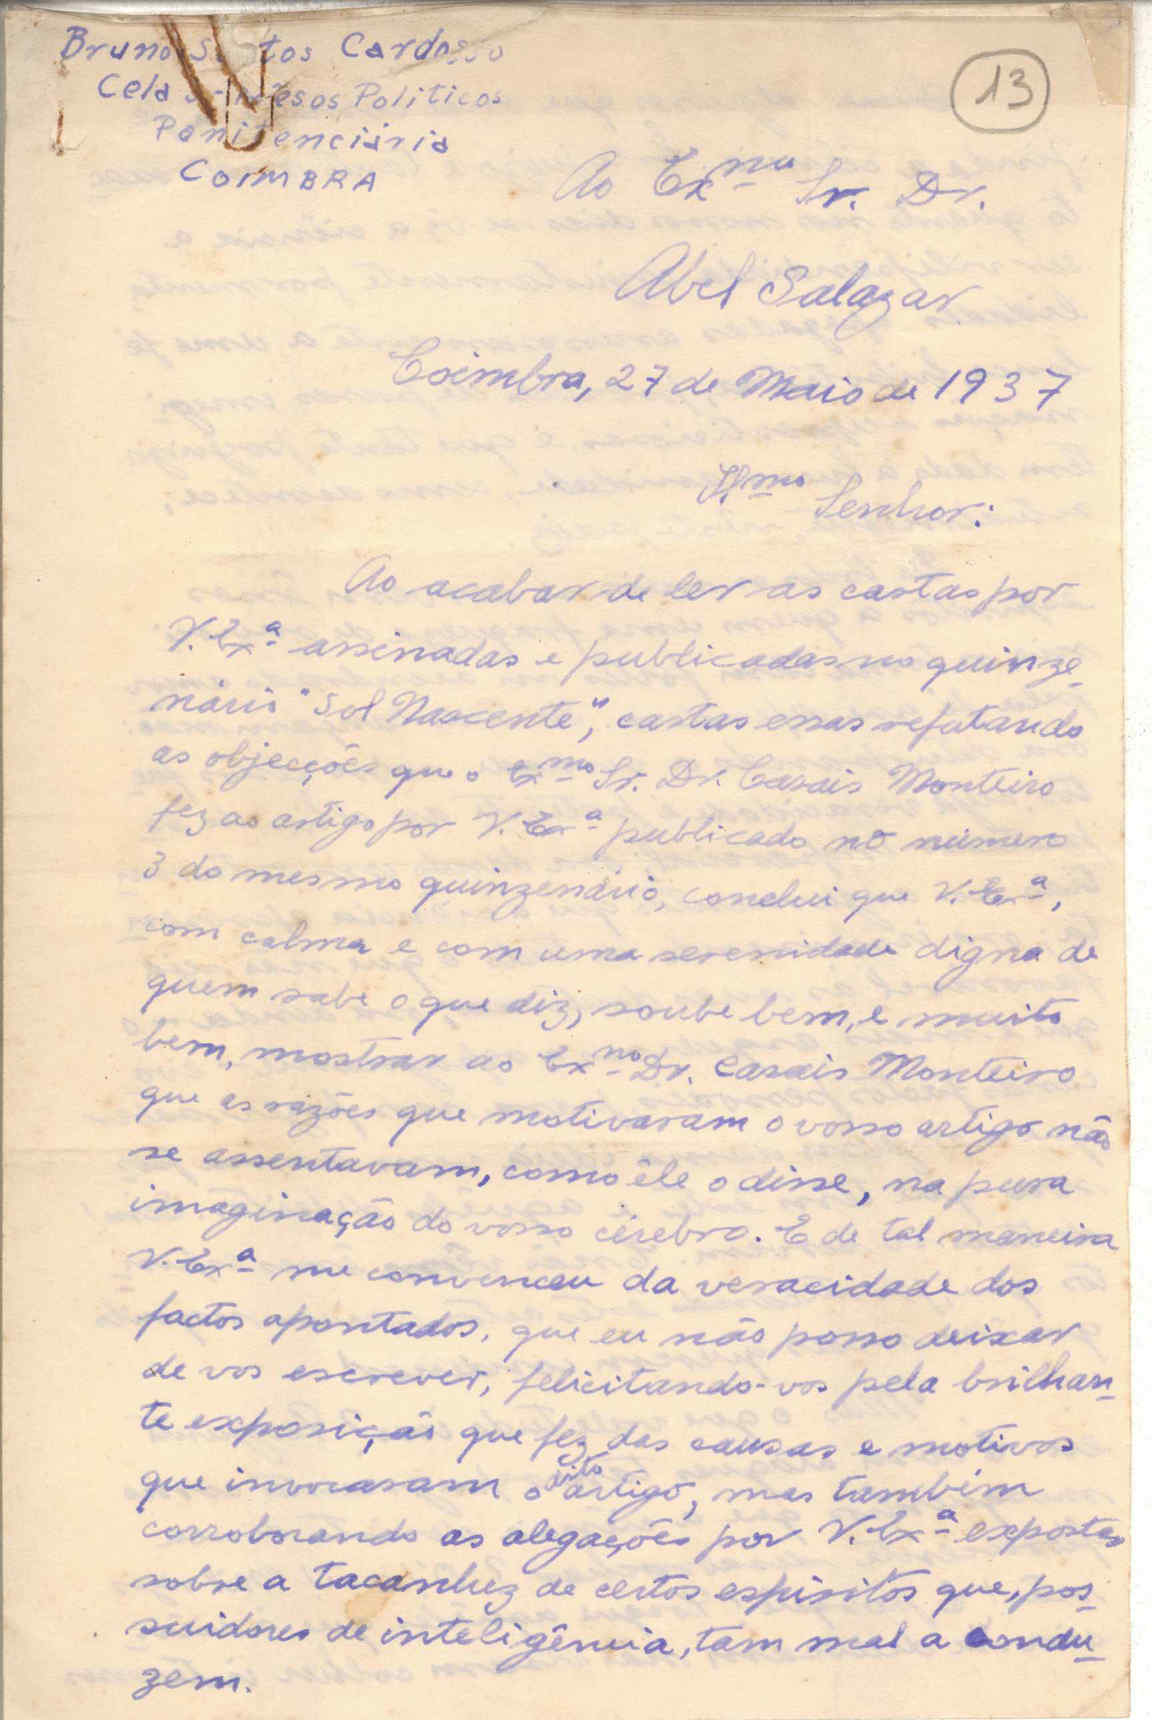 Bruno Santos Cardoso
Cela Presos Politicos
Penitenciária
COIMBRA
13
Ao Exmo Sr. Dr.
Abel Salazar
Coimbra, 27 de Maio de 1937
Ilmo Senhor:
Ao acabar de ler as cartas por
V. Exª assinadas e publicadas no quinze-
nário "Sol Nascente", cartas essas refutando
as objecções que o Exmo Sr. Dr. Casais Monteiro
fez ao artigo por V. Exª publicado no número
3 do mesmo quinzenário, conclui que V. Exª,
com calma e com uma serenidade digna de
quem sabe o que diz, soube bem, e muito
bem, mostrar ao Exmo Dr. Casais Monteiro
que as razões que motivaram o vosso artigo não
se assentavam, como êle o disse, na pura
imaginação do vosso cérebro. E de tal maneira
V. Exª me convenceu da veracidade dos
factos apontados, que eu não posso deixar
de vos escrever, felicitando-vos pela brilhan-
te exposição que fez das causas e motivos
que invocaram o dito artigo, mas também
corroborando as alegações por V. Exª expostas
sobre a tacanhez de certos espiritos que, pos-
suidores de inteligência, tam mal a condu-
zem.